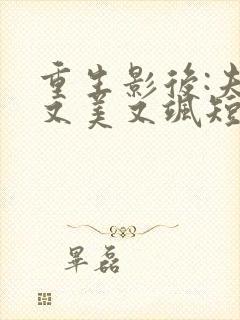 重生影後:夫
又美又颯短
畢磊